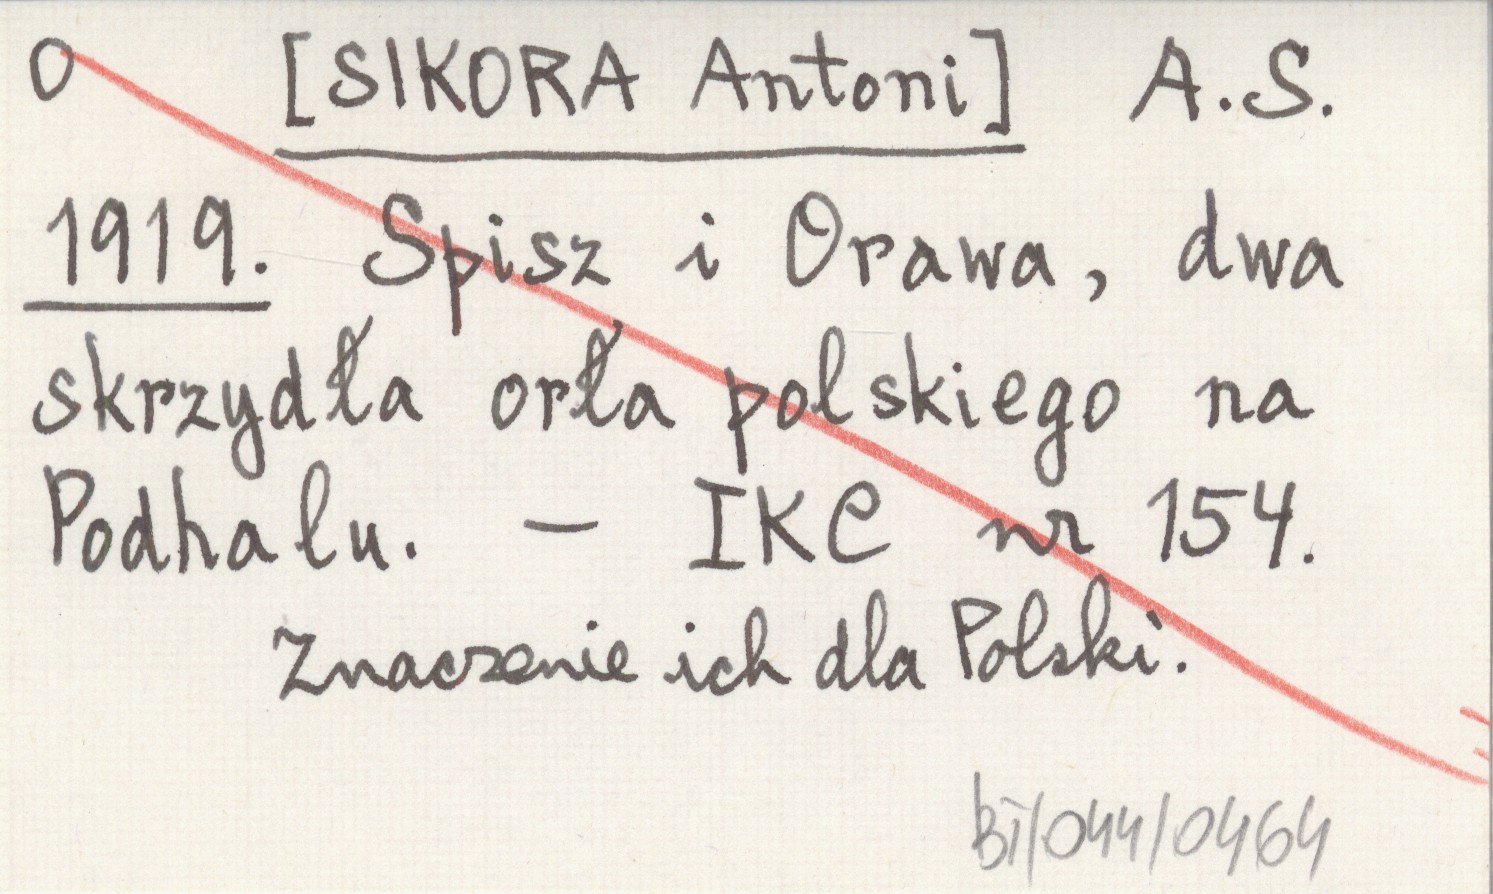 O [SIKORA Antoni] A.S.
1919. Spisz i Orawa, dwa
skrzydła orła polskiego na
Podhalu. — IKC nr 154.
Znaczenie ich dla Polski.
BI/044/0464